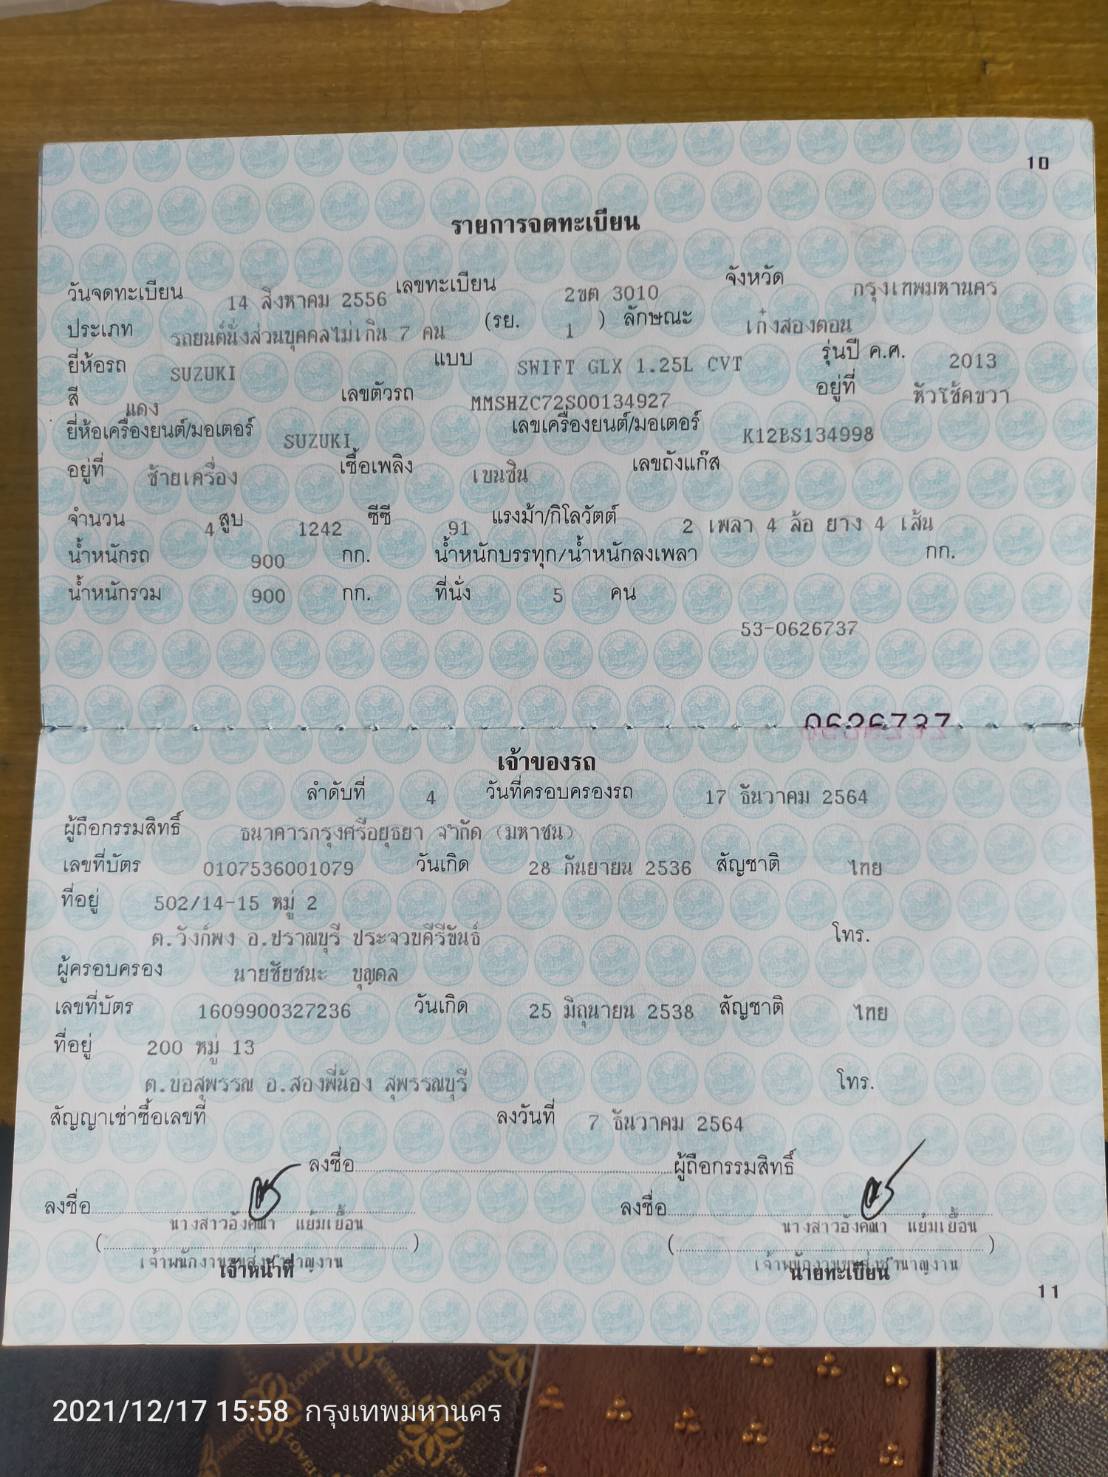 10
รายการจดทะเบียน
วันจดทะเบียน 14 สิงหาคม 2556 เลขทะเบียน 2ขต 3010 จังหวัด กรุงเทพมหานคร
ประเภท รถยนต์นั่งส่วนบุคคลไม่เกิน 7 คน (รย. 1 ) ลักษณะ เก๋งสองตอน
ยี่ห้อรถ SUZUKI แบบ SWIFT GLX 1.25L CVT รุ่นปี ค.ศ. 2013
สี แดง เลขตัวรถ MMSHZC72S00134927 อยู่ที่ หัวโช้คขวา
ยี่ห้อเครื่องยนต์/มอเตอร์ SUZUKI เลขเครื่องยนต์/มอเตอร์ K12BS134998
อยู่ที่ ซ้ายเครื่อง เชื้อเพลิง เบนซิน เลขถังแก๊ส
จำนวน 4 สูบ 1242 ซีซี 91 แรงม้า/กิโลวัตต์ 2 เพลา 4 ล้อ ยาง 4 เส้น
น้ำหนักรถ 900 กก. น้ำหนักบรรทุก/น้ำหนักลงเพลา กก.
น้ำหนักรวม 900 กก. ที่นั่ง 5 คน
53-0626737
0626737
เจ้าของรถ
ลำดับที่ 4 วันที่ครอบครองรถ 17 ธันวาคม 2564
ผู้ถือกรรมสิทธิ์ ธนาคารกรุงศรีอยุธยา จำกัด (มหาชน)
เลขที่บัตร 0107536001079 วันเกิด 28 กันยายน 2536 สัญชาติ ไทย
ที่อยู่ 502/14-15 หมู่ 2
ต.วังก์พง อ.ปราณบุรี ประจวบคีรีขันธ์ โทร.
ผู้ครอบครอง นายชัยชนะ บุญดล
เลขที่บัตร 1609900327236 วันเกิด 25 มิถุนายน 2538 สัญชาติ ไทย
ที่อยู่ 200 หมู่ 13
ต.บอสุพรรณ อ.สองพี่น้อง สุพรรณบุรี โทร.
สัญญาเช่าซื้อเลขที่ ลงวันที่ 7 ธันวาคม 2564
ลงชื่อ ผู้ถือกรรมสิทธิ์
ลงชื่อ ลงชื่อ
นางสาวอังคณา แย้มเยื้อน นางสาวอังคณา แย้มเยื้อน
( ) ( )
เจ้าพนักงานขนส่งชำนาญงาน เจ้าพนักงานขนส่งชำนาญงาน
เจ้าหน้าที่ นายทะเบียน
11
2021/12/17 15:58 กรุงเทพมหานคร